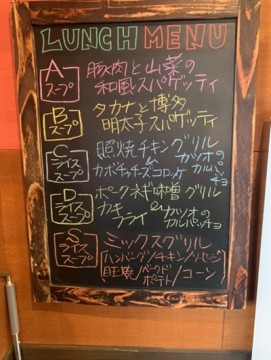 LUNCH MENU
A スープ
豚肉と山菜の
和風スパゲッティ
B スープ
タカナと博多
明太子スパゲッティ
C ライス スープ
照焼チキングリル
&
カボチャチーズコロッケ
カツオの
カルパッチョ
D ライス スープ
ポークネギ味噌グリル
カキ
フライ
カツオの
カルパッチョ
S ライス スープ
ミックスグリル
ハンバーグ/チキン/ソーセージ
目玉焼/ベークドポテト/コーン